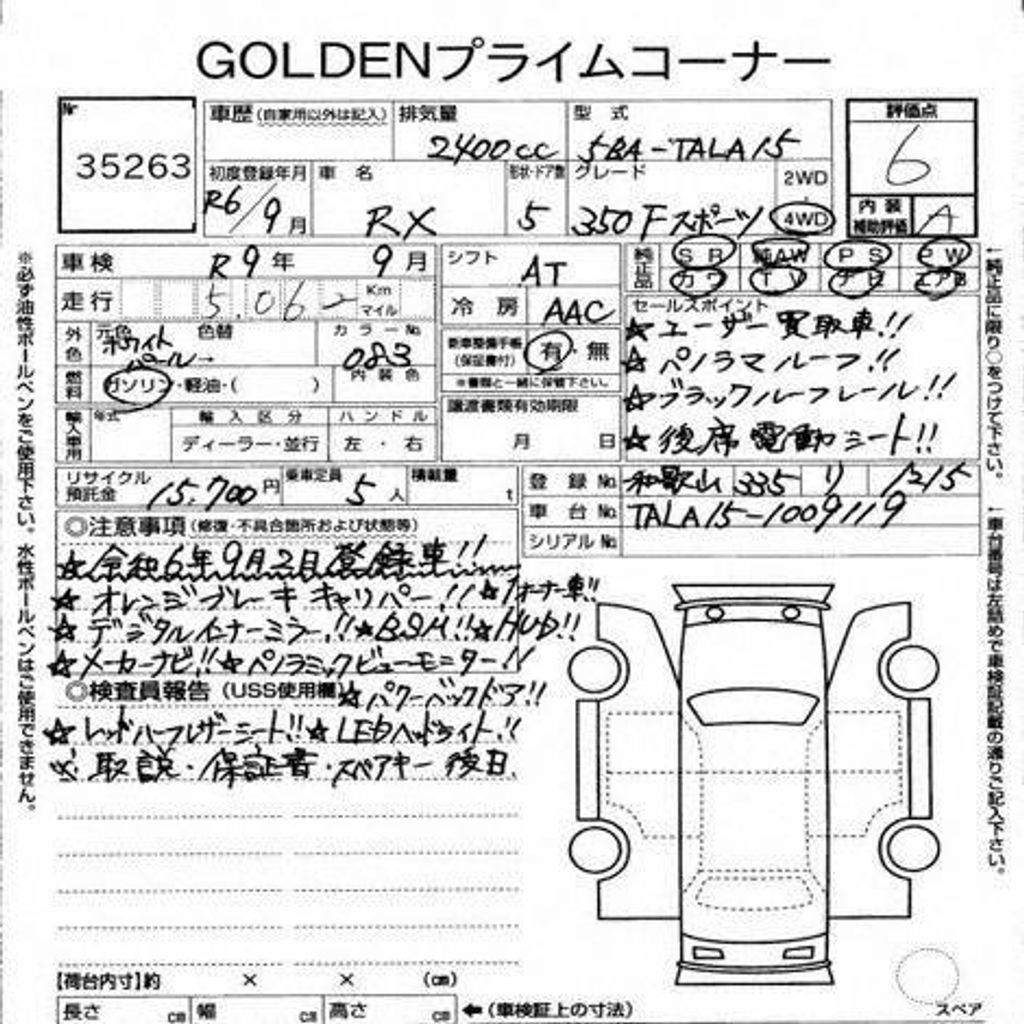 GOLDENプライムコーナー
Nr
35263
車歴(自家用以外は記入)
排気量
2400cc
型 式
5BA-TALA15
評価点
6
初度登録年月
R6/9月
車 名
RX
形状・ドア数
5
グレード
350 Fスポーツ
2WD
4WD
内 装
補助評価
A
車検 R9年 9月
走行 5.062 Km
マイル
シフト AT
冷 房 AAC
純正品 SR 純AW PS PW
カワ TV ナビ エアB
外色 元色 ホワイトパール→
色替
カラーNo
083
燃料 ガソリン・軽油・( )
内 装 色
新車整備手帳
(保証書付)
有・無
※書類と一緒に保管下さい。
セールスポイント
☆ユーザー買取車!!
☆パノラマルーフ!!
☆ブラックルーフレール!!
☆後席電動シート!!
輸入車用 年式
輸 入 区 分
ディーラー・並行
ハ ン ド ル
左 ・ 右
譲渡書類有効期限
月 日
リサイクル
預託金 15,700円
乗車定員 5人
積載量 t
登 録 No. 和歌山 335 リ 1215
車 台 No. TALA15-1009119
シリアル No.
◎注意事項(修復・不具合箇所および状態等)
☆令和6年9月2日登録車!!
☆オレンジブレーキキャリパー!!☆1オーナー車!!
☆デジタルインナーミラー!!☆BSM!!☆HUD!!
☆メーカーナビ!!☆パノラミックビューモニター!!
◎検査員報告(USS使用欄)☆パワーバックドア!!
☆レッドハーフレザーシート!!☆LEDヘッドライト!!
※取説・保証書・スペアキー後日
【荷台内寸】約 × × (cm)
長さ cm 幅 cm 高さ cm ←(車検証上の寸法)
スペア
※必ず油性ボールペンをご使用下さい。水性ボールペンはご使用できません。
←純正品に限り○をつけて下さい。
←車台番号は左詰めで車検証記載の通りご記入下さい。